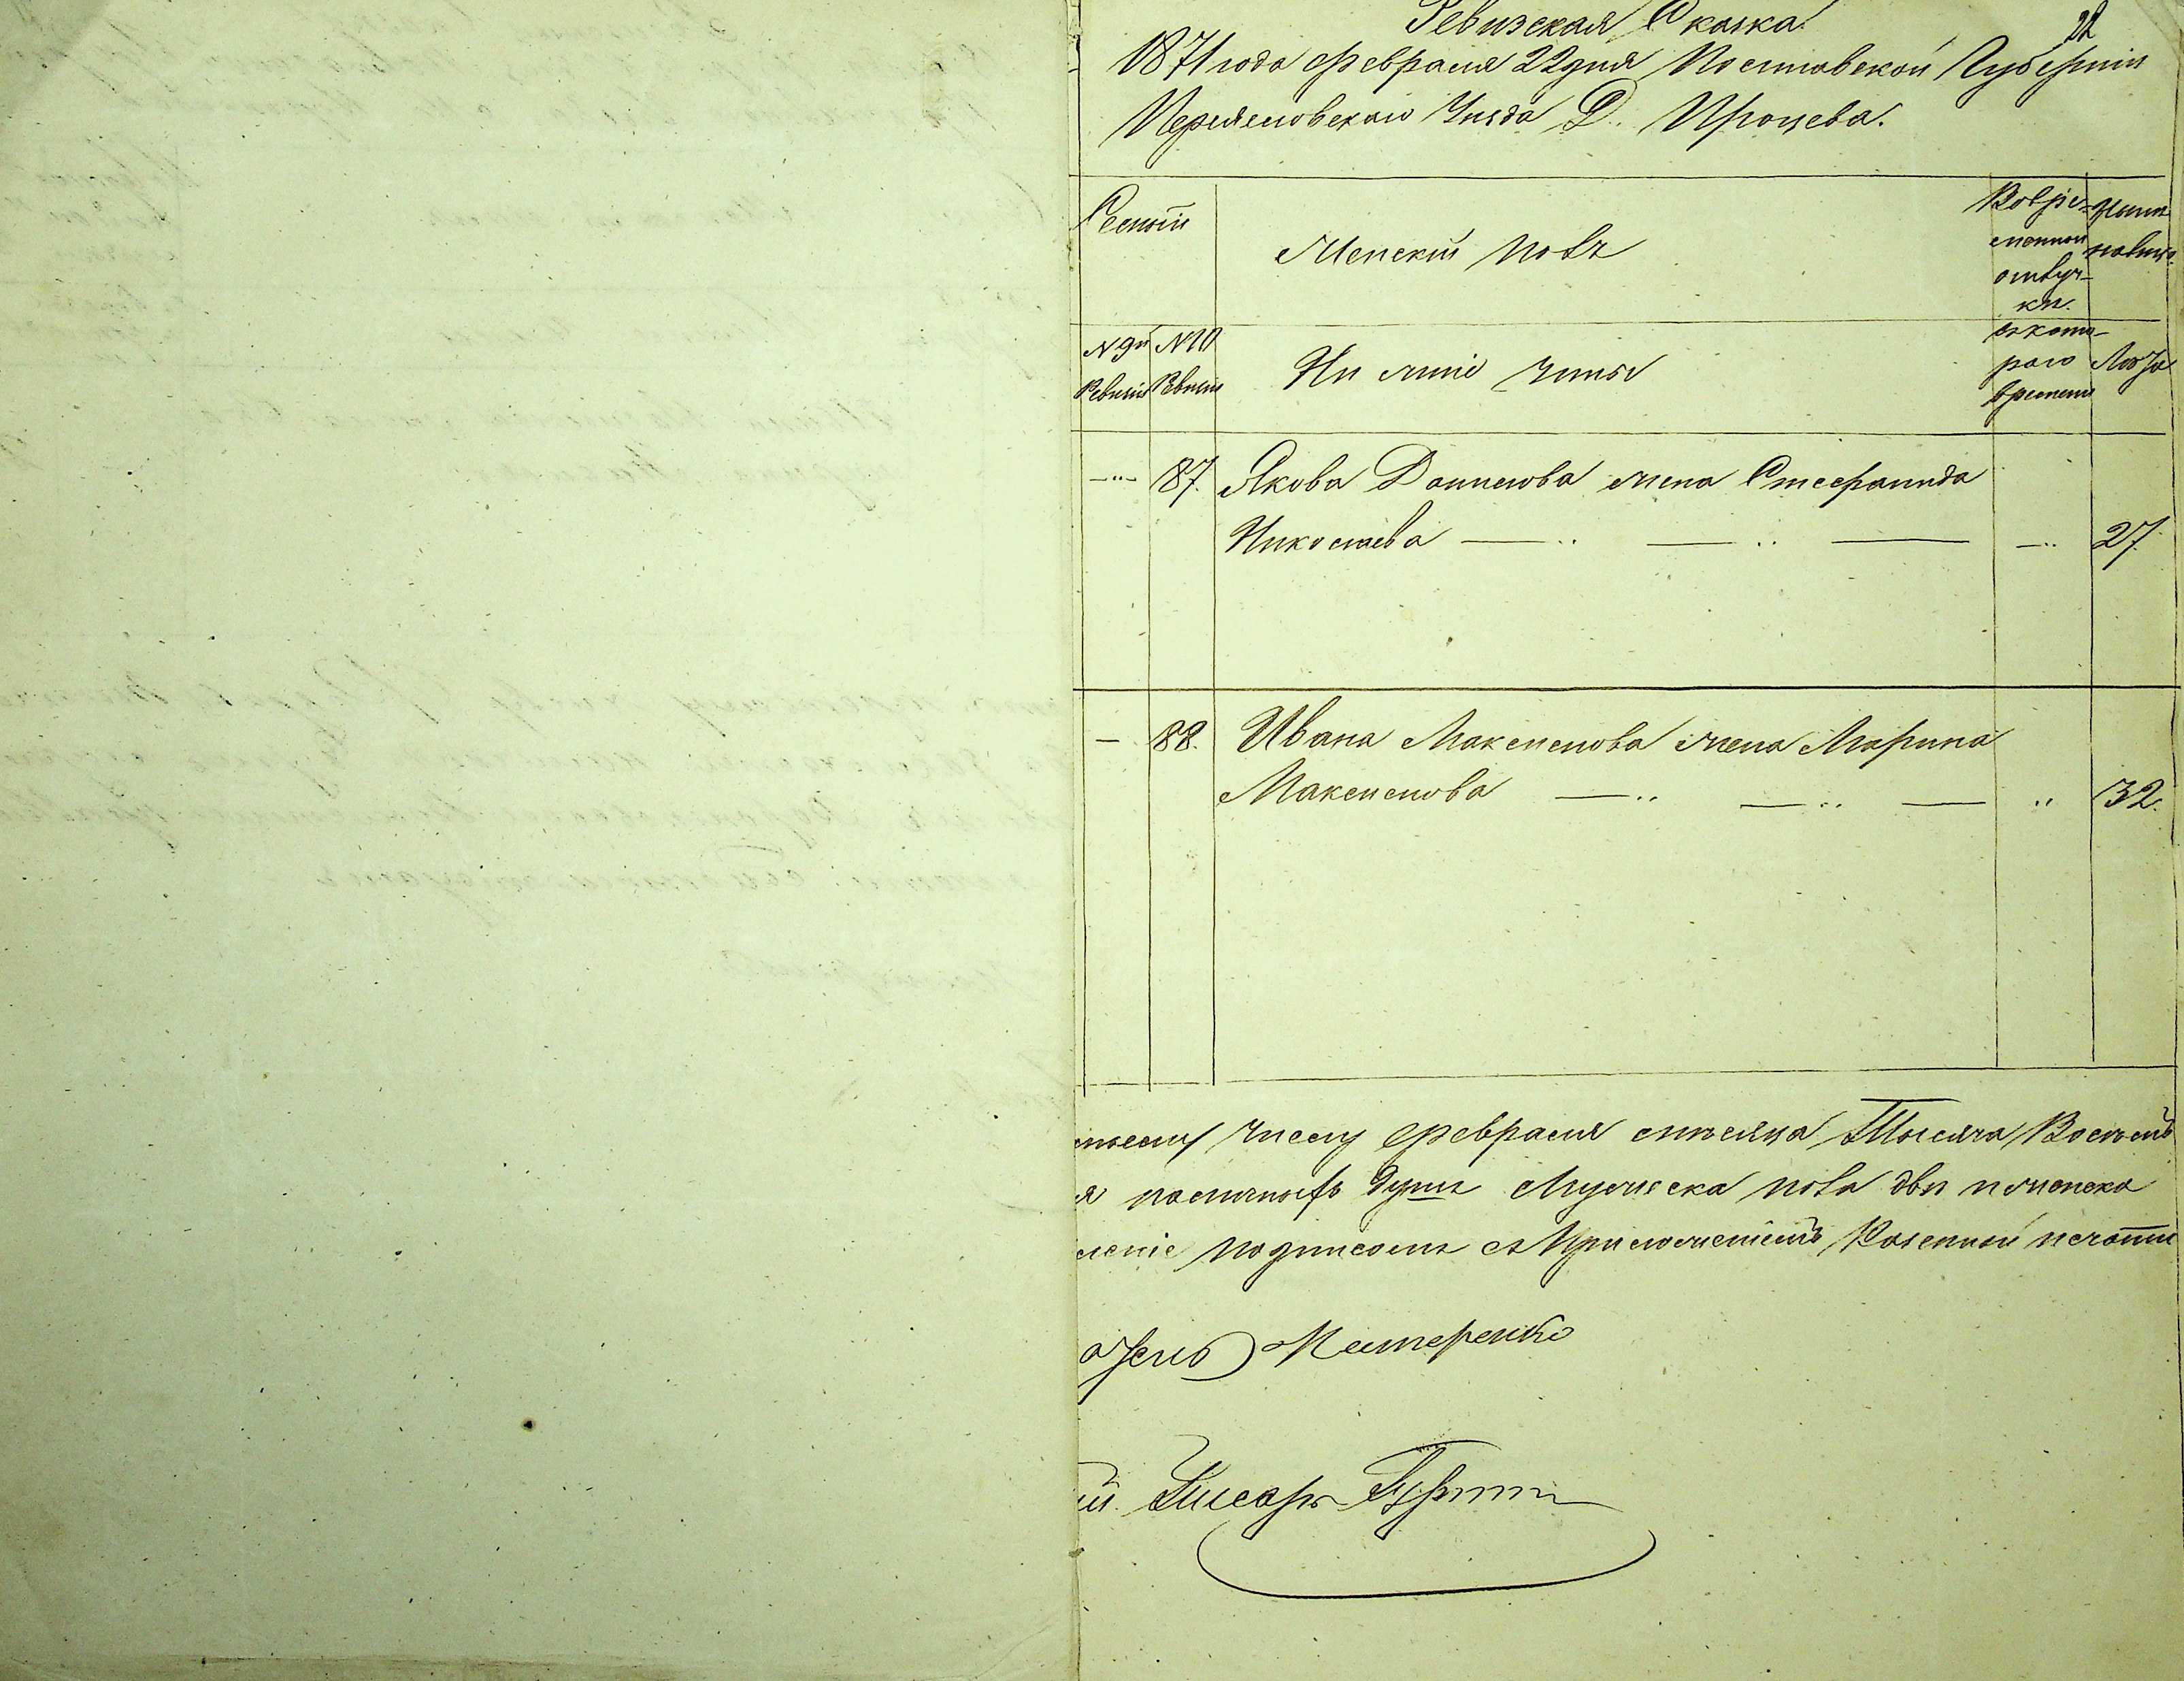 Ревизская Сказка
22
1871 года февраля 22 дня Полтавской Губерніи
Переяславскаго Уѣзда Д. Процева.
Семьи
Женскій полъ
Вовре-
менной
отлуч-
ки.
Нынѣ
налицо.
№ 9й
Ревизіи
№ 10
Ревизіи
съ кото-
раго
времени
Лѣта
87. Якова Данилова жена Стефанида
Николаева 27
88. Ивана Максимова жена Марина
Максимова 32.
числу февраля мѣсяца Тысяча Восемь
душъ Мужеска пола двѣ и женска
леніе подписомъ съ Приложеніемъ Казенной печати
Нестеренко
й. Писарь